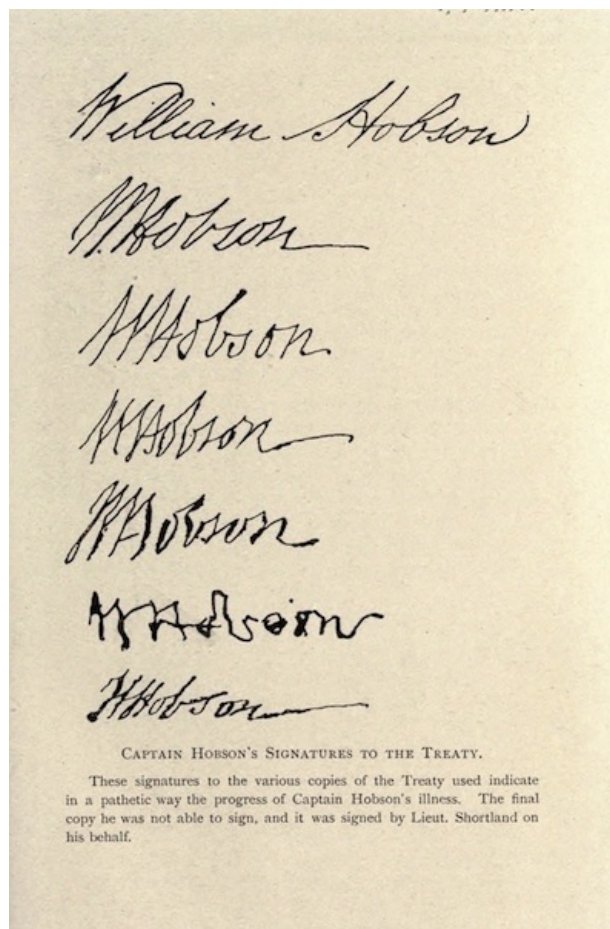 William Hobson
W. Hobson
W Hobson
W Hobson
W Hobson
W Hobson
W Hobson
CAPTAIN HOBSON'S SIGNATURES TO THE TREATY.
These signatures to the various copies of the Treaty used indicate
in a pathetic way the progress of Captain Hobson's illness. The final
copy he was not able to sign, and it was signed by Lieut. Shortland on
his behalf.